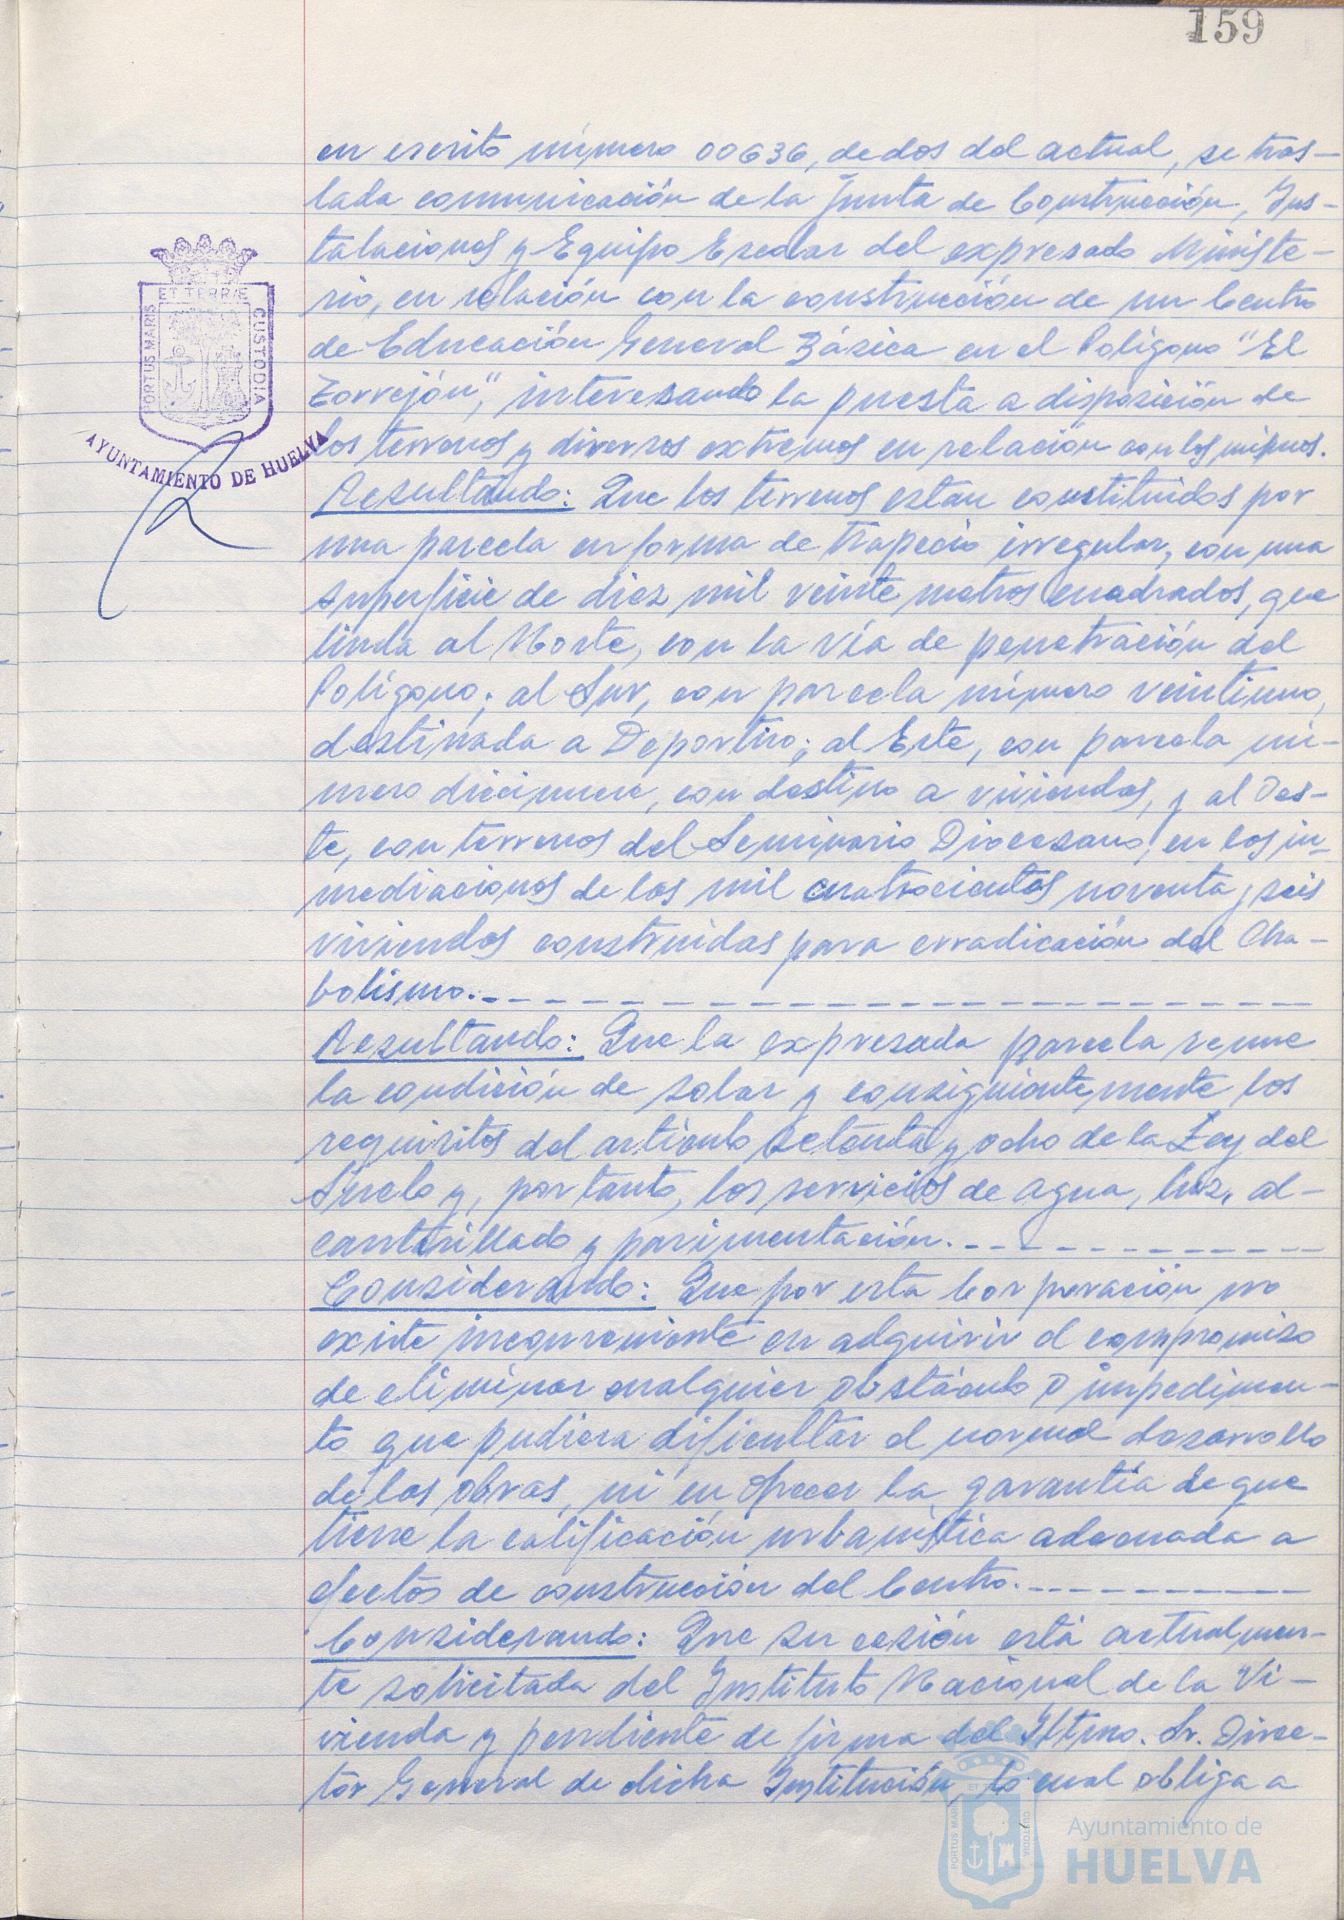 159
en escrito número 00636, de dos del actual, se tras-
lada comunicación de la Junta de Construcción, Ins-
talaciones y Equipo Escolar del expresado Ministe-
rio, en relación con la construcción de un Centro
de Educación General Básica en el Polígono "El
Torrejón", interesando la puesta a disposición de
los terrenos y diversos extremos en relación con los mismos.
Resultando: Que los terrenos estan constituidos por
una parcela en forma de trapecio irregular, con una
superficie de diez mil veinte metros cuadrados, que
linda al Norte, con la vía de penetración del
Polígono; al Sur, con parcela número veintiuno,
destinada a Deportivo; al Este, con parcela nú-
mero diecinueve, con destino a viviendas, y al Oes-
te, con terrenos del Seminario Diocesano, en los in-
mediaciones de las mil cuatrocientas noventa y seis
viviendas construidas para erradicación del Cha-
bolismo.
Resultando: Que la expresada parcela reune
la condición de solar y consiguientemente los
requisitos del artículo setenta y ocho de la Ley del
Suelo y, por tanto, los servicios de agua, luz, al-
cantarillado y pavimentación.
Considerando: Que por esta Corporación no
existe inconveniente en adquirir el compromiso
de eliminar cualquier obstáculo o impedimen-
to que pudiera dificultar el normal desarrollo
de las obras, ni en ofrecer la garantía de que
tiene la calificación urbanística adecuada a
efectos de construcción del Centro.
Considerando: Que su cesión está actualmen-
te solicitada del Instituto Nacional de la Vi-
vienda y pendiente de firma del Iltmo. Sr. Direc-
tor General de dicha Institución, lo cual obliga a
PORTUS MARIS
ET TERRÆ
CUSTODIA
AYUNTAMIENTO DE HUELVA
Ayuntamiento de
HUELVA